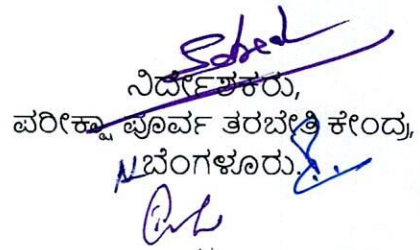 ನಿರ್ದೇಶಕರು,
ಪರೀಕ್ಷಾ ಪೂರ್ವ ತರಬೇತಿ ಕೇಂದ್ರ,
ಬೆಂಗಳೂರು.